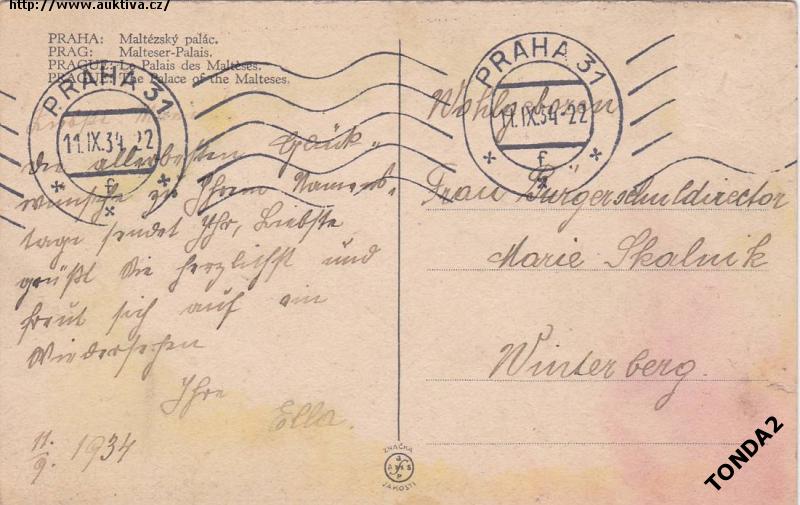 http://www.auktiva.cz/
PRAHA: Maltézský palác.
PRAG: Malteser-Palais.
PRAGUE: Le Palais des Maltèses.
PRAGUE: The Palace of the Malteses.
PRAHA 31
11.IX.34-22
f
PRAHA 31
11.IX.34-22
f
Die allerbesten Glück-
wünsche zu Ihrem Namens-
tage sendet Ihr, Liebste
grüßt Sie herzlichst und
freut sich auf ein
Wiedersehen
Ihre
Ella.
11./9. 1934
Wohlgeboren
Frau Bürgerschuldirector
Marie Skalnik
Winterberg.
ZNAČKA
JAKOSTI
TONDA2